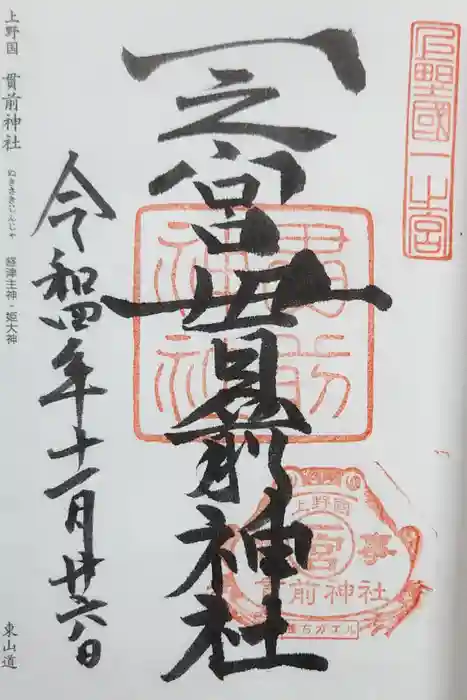 上野國一之宮
一之宮貫前神社
貫前神社
上野國
一宮
事
貫前神社
令和四年十一月廿六日
上野国 貫前神社 ぬきさきじんじゃ 経津主神・姫大神 東山道